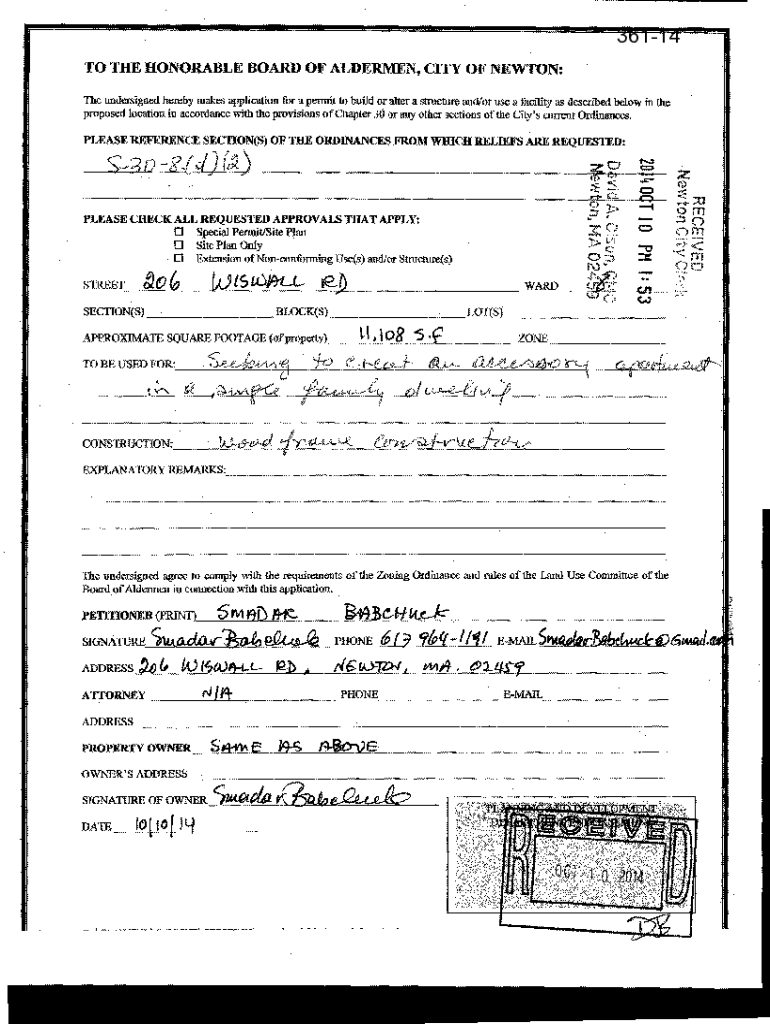 361-14
TO THE HONORABLE BOARD OF ALDERMEN, CITY OF NEWTON:
The undersigned hereby makes application for a permit to build or alter a structure and/or use a facility as described below in the
proposed location in accordance with the provisions of Chapter 30 or any other sections of the City's current Ordinances.
PLEASE REFERENCE SECTION(S) OF THE ORDINANCES FROM WHICH RELIEFS ARE REQUESTED:
S-30-8(d)(2)
RECEIVED
Newton City Clerk
2014 OCT 10 PM 1:53
David A. Olson, CMC
Newton, MA 02459
PLEASE CHECK ALL REQUESTED APPROVALS THAT APPLY:
Special Permit/Site Plan
Site Plan Only
Extension of Non-conforming Use(s) and/or Structure(s)
STREET 206 WISWALL RD WARD
SECTION(S) BLOCK(S) LOT(S)
APPROXIMATE SQUARE FOOTAGE (of property) 11,108 S.F ZONE
TO BE USED FOR: Seeking to creat an accessory apartment
in a single family dwelling
CONSTRUCTION: Wood frame construction
EXPLANATORY REMARKS:
The undersigned agree to comply with the requirements of the Zoning Ordinance and rules of the Land Use Committee of the
Board of Aldermen in connection with this application.
PETITIONER (PRINT) SMADAR BABCHUCK
SIGNATURE Smadar Babchuck PHONE 617 964-1191 E-MAIL SmadarBabchuck@Gmail.com
ADDRESS 206 WISWALL RD, NEWTON, MA. 02459
ATTORNEY N/A PHONE E-MAIL
ADDRESS
PROPERTY OWNER SAME AS ABOVE
OWNER'S ADDRESS
SIGNATURE OF OWNER Smadar Babchuck
DATE 10/10/14
PLANNING AND DEVELOPMENT
RECEIVED
OCT 10 2014
DB